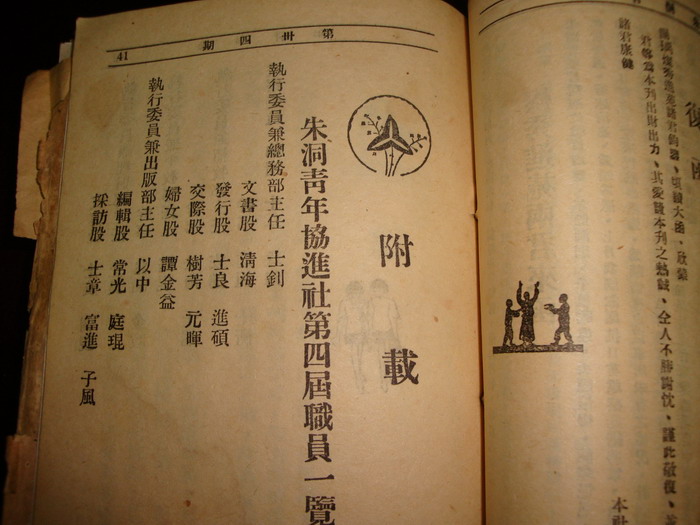 復
諸君康健
君等為本刊出財出力、其愛護本刊之熱誠、仝人不勝謝忱、謹此敬復、
第卅四期
41
附載
朱洞青年協進社第四屆職員一覽
執行委員兼總務部主任 士釗
文書股 清海
發行股 士良 進碩
交際股 樹芳 元暉
婦女股 譚金益
執行委員兼出版部主任 以中
編輯股 常光 庭琨
採訪股 士章 富進 子風